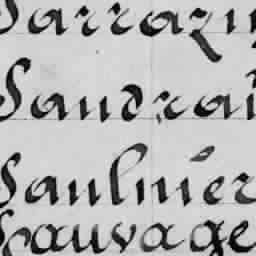 Sarrazin
Sandrai
Saulnier
Sauvage